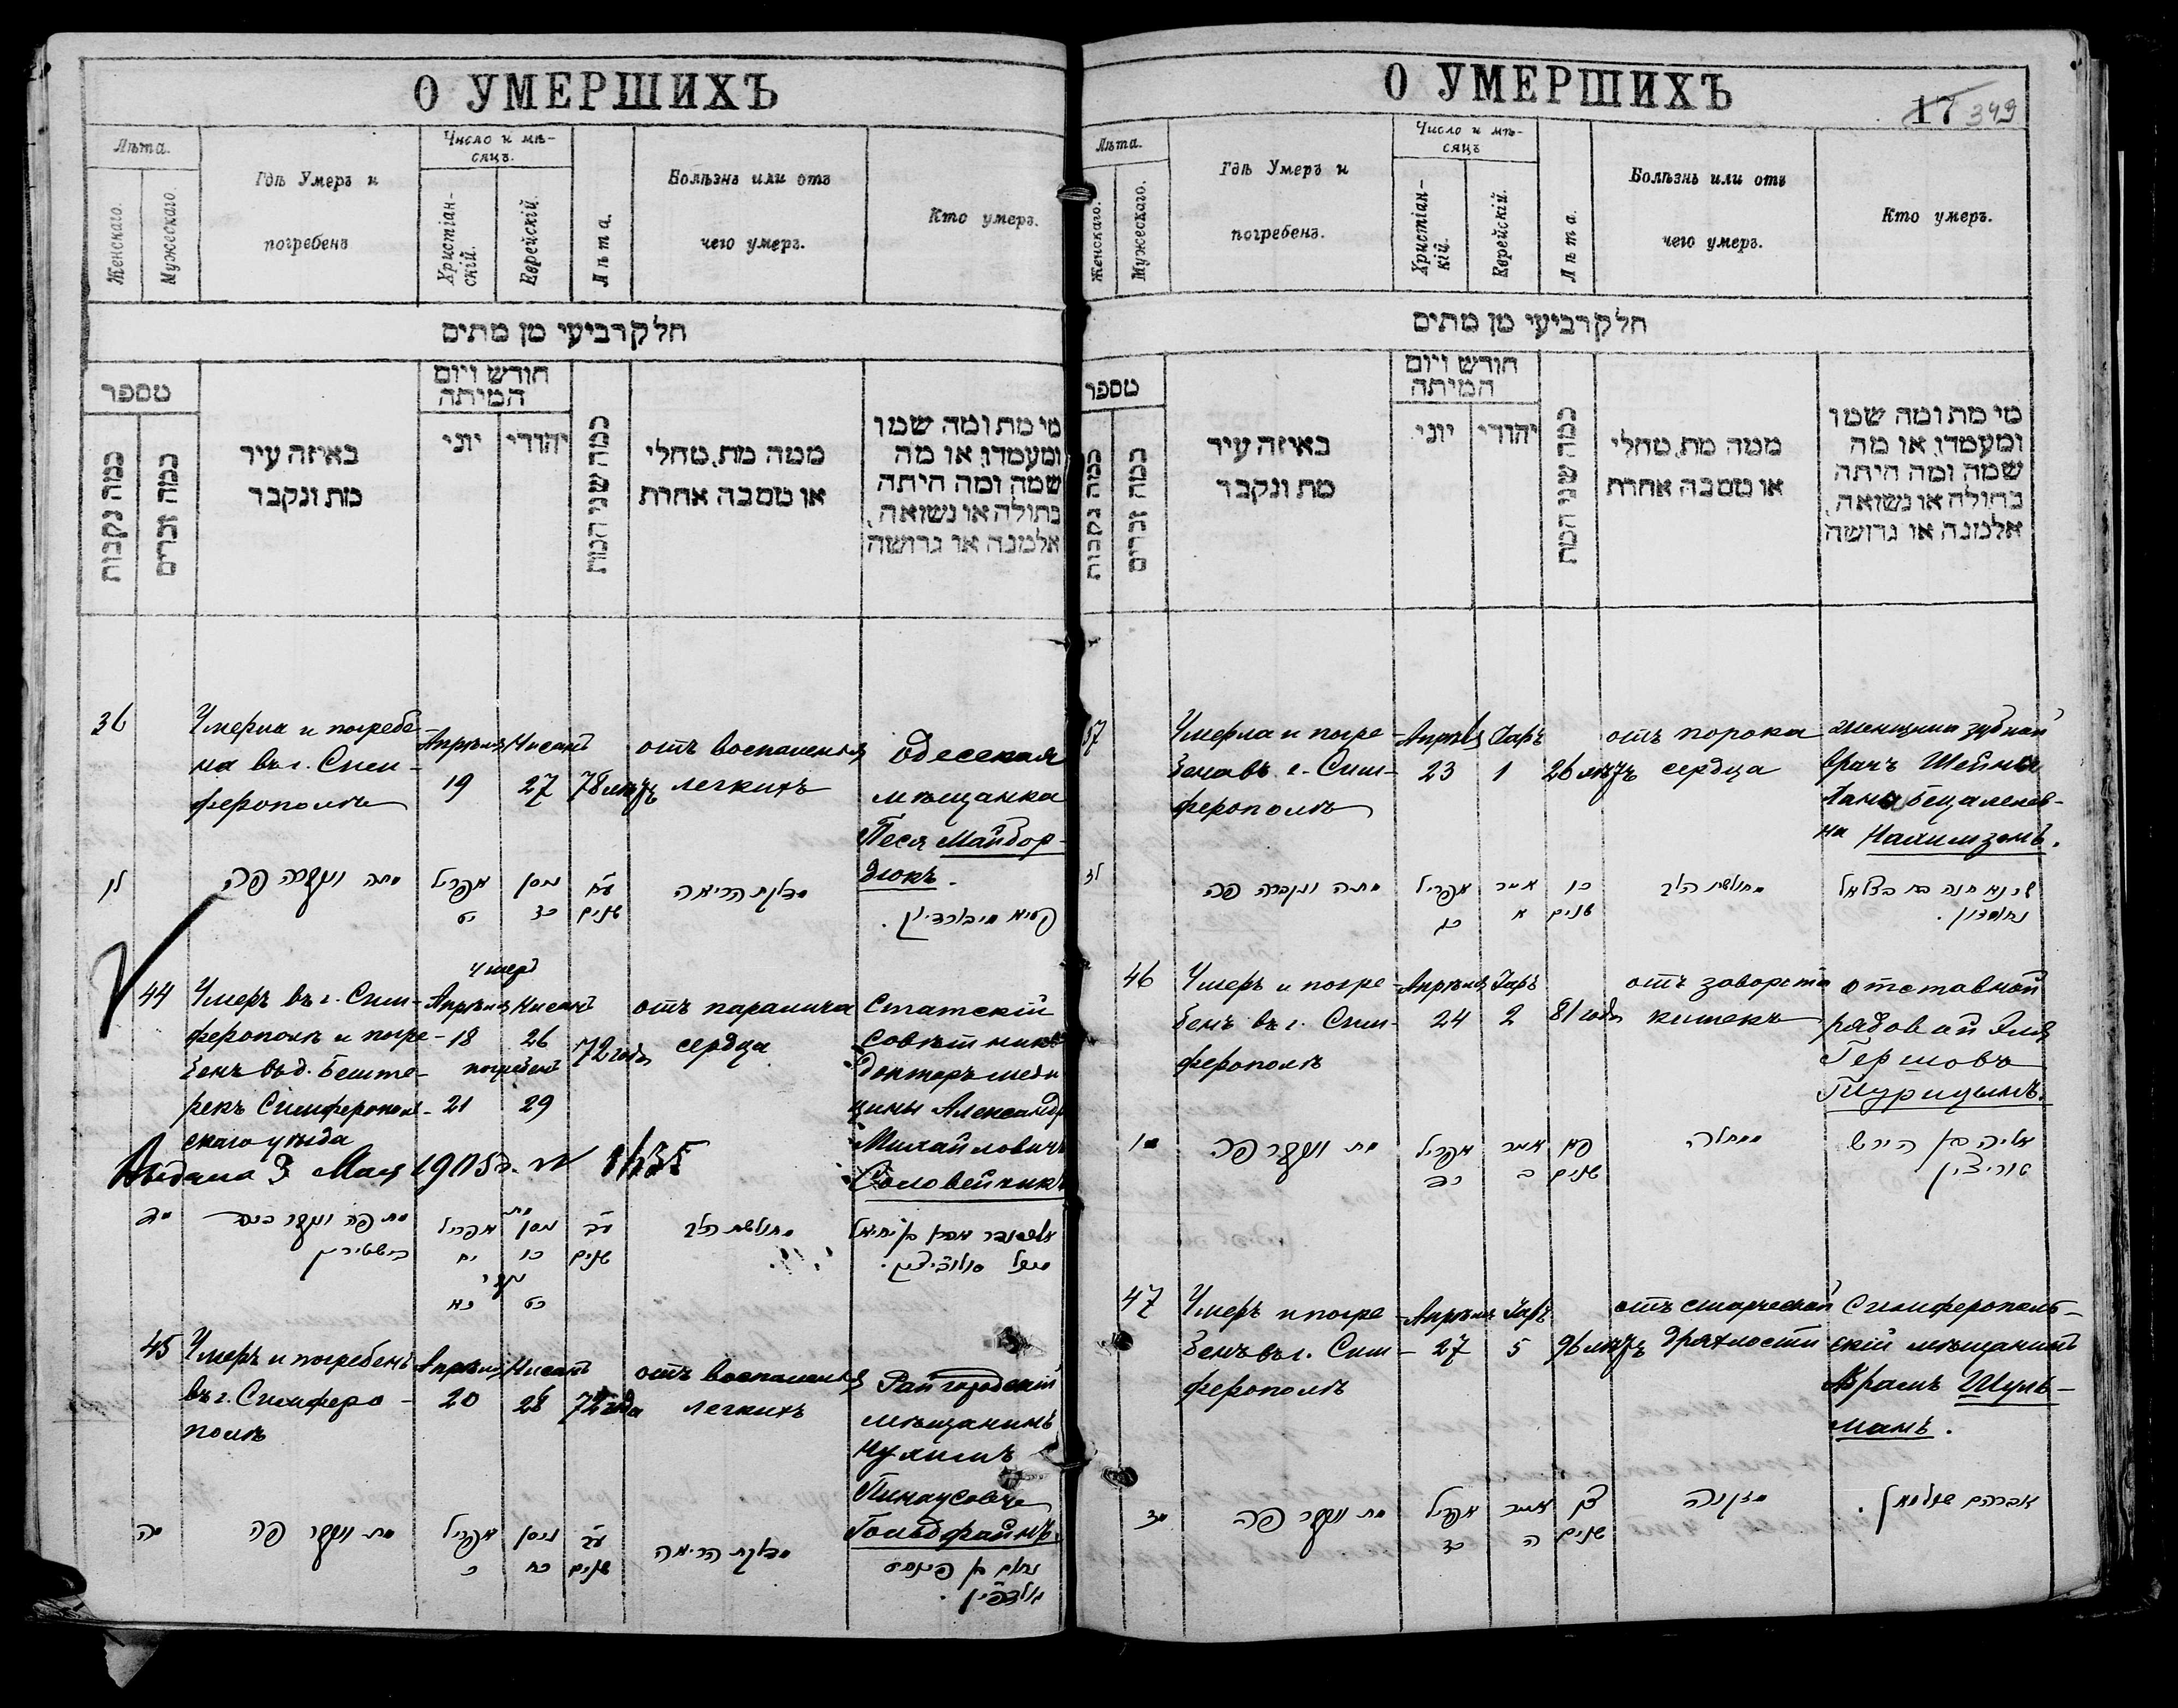 О УМЕРШИХЪ
Лѣта.
Женскаго.
Мужескаго.
Гдѣ Умеръ и
погребенъ
Число и мѣ-
сяцъ.
Христіан-
скій.
Еврейскій.
Лѣта.
Болѣзнь или отъ
чего умеръ.
Кто умеръ.
חלק רביעי מן מתים
מספר
כמה נקבות
כמה זכרים
באיזה עיר
מת ונקבר
חודש ויום
המיתה
יוני
יהודי
כמה שני המת
ממה מת, מחלי
או מסבה אחרת
מי מת ומה שמו
ומעמדו, או מה
שמה ומה היתה
בתולה או נשואה,
אלמנה או גרושה
36
Умерла и погребе-
на въ г. Сим-
ферополѣ
Апрѣля
19
Нисанъ
27
78 лѣтъ
отъ воспаленія
легкихъ
Одесская
мѣщанка
Песя Майбор-
дюкъ.
לו
מתה ונקברה פה
אפריל
יט
ניסן
כז
עח
שנים
מדלקת הריאה
פסיא מיבורדיוק.
44
Умеръ въ г. Сим-
ферополѣ и погре-
бенъ въ д. Беште-
рекъ Симферополь-
скаго уѣзда
умеръ
Апрѣля
18
Нисанъ
26
погребенъ
21
29
72 года
отъ паралича
сердца
Статскій
Совѣтникъ
Докторъ меди
цины Александръ
Михайловичъ
Соловейчикъ
Выдана 3 Мая 1905 г. №
מד
מת פה ונקבר בכפר
בישטירק
מת
אפריל
יח
ניסן
כו
נקבר
כא
כט
עב
שנים
מחולשת הלב
45
Умеръ и погребенъ
въ г. Симферо-
полѣ
Апрѣля
20
Нисанъ
28
72 года
отъ воспаленія
легкихъ
Райгородскій
мѣщанинъ
Нухимъ
Пинхусовъ
Гольдфайнъ.
מה
מת ונקבר פה
אפריל
כ
ניסן
כח
עב
שנים
מדלקת הריאה
נחום בן פינחס
גולדפיין.
О УМЕРШИХЪ
17 349
Лѣта.
Женскаго.
Мужескаго.
Гдѣ Умеръ и
погребенъ.
Число и мѣ-
сяцъ
Христіан-
кій.
Еврейскій.
Лѣта.
Болѣзнь или отъ
чего умеръ.
Кто умеръ.
חלק רביעי מן מתים
מספר
כמה נקבות
כמה זכרים
באיזה עיר
מת ונקבר
חודש ויום
המיתה
יוני
יהודי
כמה שני המת
ממה מת, מחלי
או מסבה אחרת
מי מת ומה שמו
ומעמדו, או מה
שמה ומה היתה
בתולה או נשואה,
אלמנה או גרושה
37
Умерла и погре-
бена въ г. Сим-
ферополѣ
Апрѣля
23
Іаръ
1
26 лѣтъ
отъ порока
сердца
женщина зубной
врачъ Шейна
Хана Бецалелев-
на Нахимзонъ.
לז
מתה ונקברה פה
אפריל
כג
אייר
א
כו
שנים
מחולשת הלב
שיינא חנה בת בצלאל
נחימזון.
46
Умеръ и погре-
бенъ въ г. Сим-
ферополѣ
Апрѣля
24
Іаръ
2
81 года
отъ заворота
кишекъ
отставной
рядовой Элья
Гершовъ
Турицынъ.
מו
מת ונקבר פה
אפריל
כד
אייר
ב
פא
שנים
ממחלה
אליה בן הירש
טוריצין
47
Умеръ и погре-
бенъ въ г. Сим-
ферополѣ
Апрѣля
27
Іаръ
5
96 лѣтъ
отъ старческой
дряхлости
Симферополь-
скій мѣщанинъ
Абрамъ Шуль-
манъ.
מז
מת ונקבר פה
אפריל
כז
אייר
ה
צו
שנים
מזקנה
אברהם שולמאן.